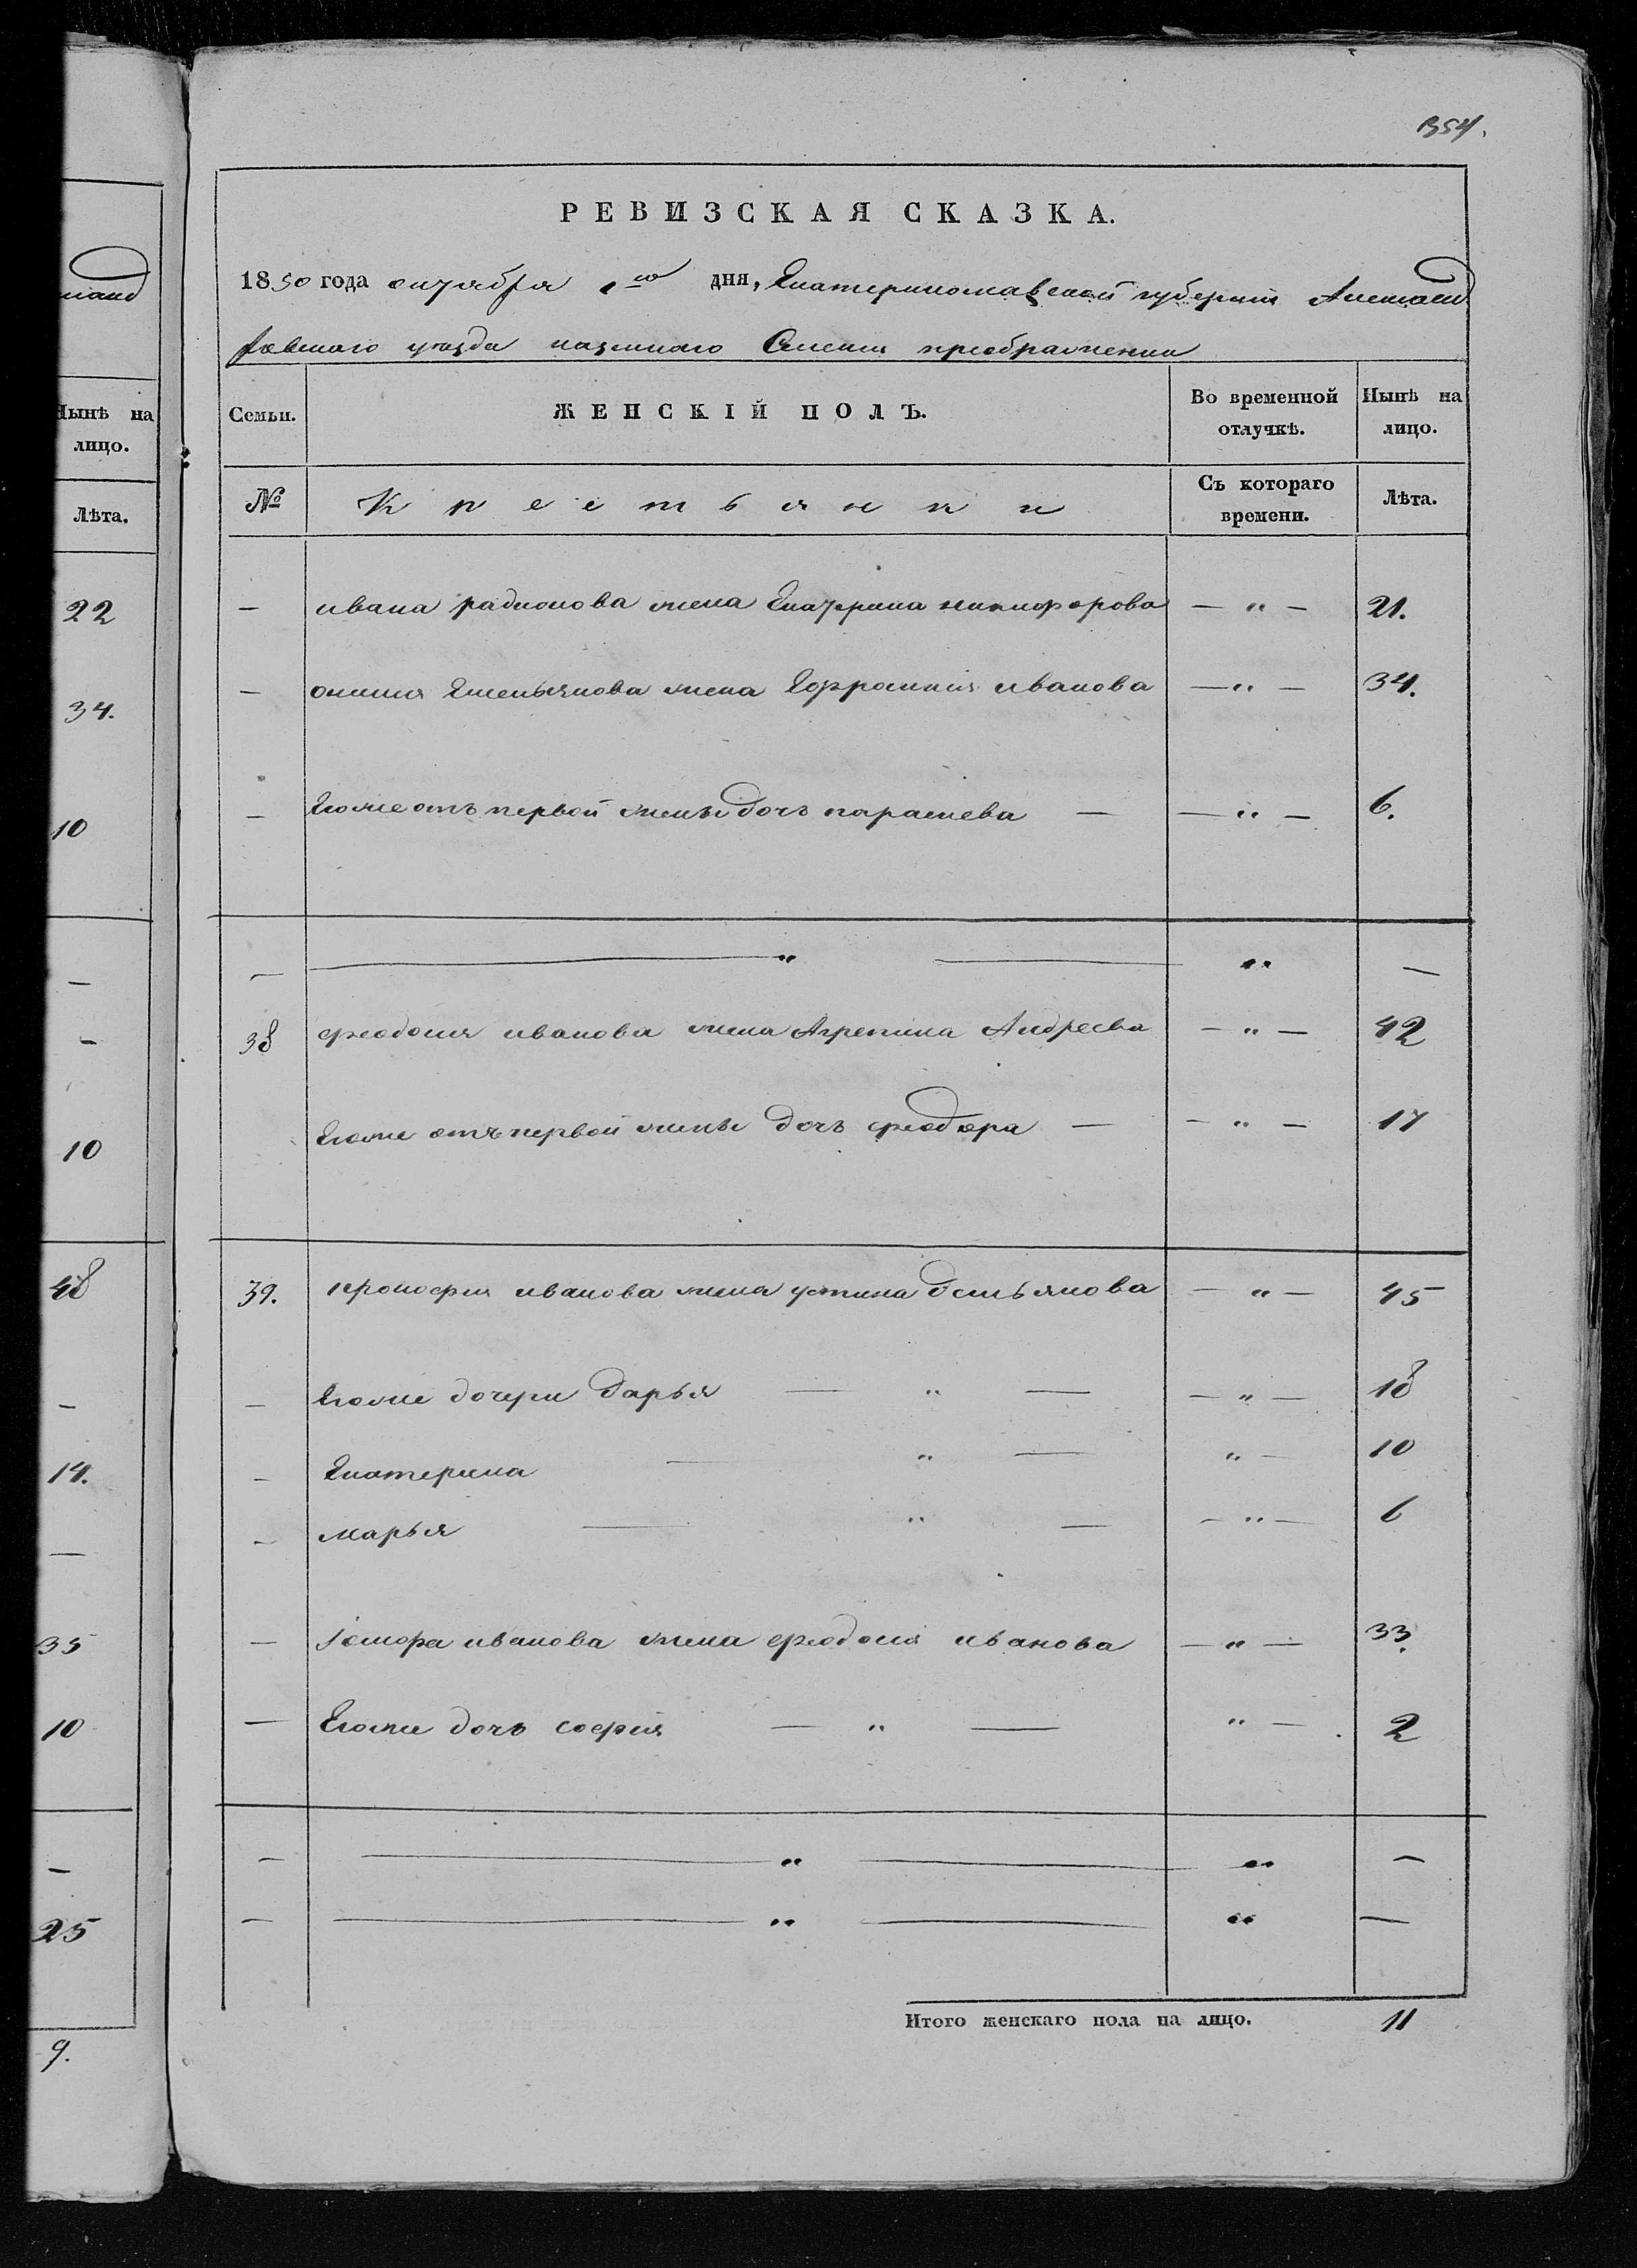 354.
РЕВИЗСКАЯ СКАЗКА.
1850 года октября 1го дня, Екатеринославской губерніи Александ
ровскаго уезда казеннаго Селенія преображенки
Семьи. ЖЕНСКІЙ ПОЛЪ. Во временной отлучкѣ. Нынѣ на лицо.
№ Крестьянки Съ котораго времени. Лѣта.
— ивана радионова жена Екатерина никифорова — " — 21.
— Емельянова жена Ефросинія иванова — " — 34.
— Егоже отъ первой жены дочь параскева — — " — 6.
— — " — " —
38 феодосия иванова жена Агрепина Андреева — " — 42
Егоже отъ первой жены дочь феодора — — " — 17
39. прокофия иванова жена устина демьянова — " — 45
— Егоже дочери дарья — " — — " — 18
— Екатерина — " — " — 10
— марья — " — — " — 6
— иванова жена феодосия иванова — " — 33.
— Егоже дочь софия — " — " — 2
— — " — " —
— — " — " —
Итого женскаго пола на лицо. 11
Нынѣ на
лицо.
Лѣта.
22
34.
10
—
—
10
48
—
14.
—
35
10
—
25
9.